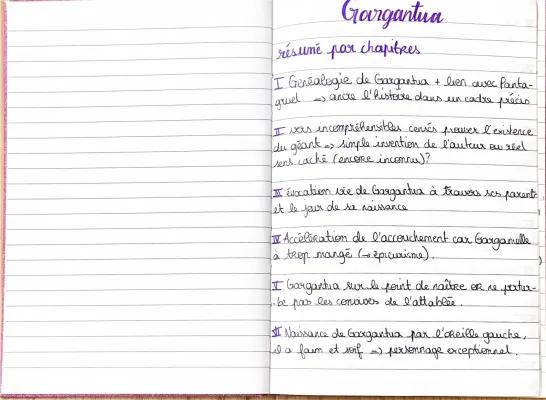 Gargantua
résumé par chapitres
I Généalogie de Gargantua + lien avec Panta-
gruel => ancre l'histoire dans un cadre précis
II vers incompréhensibles censés prouver l'existence
du géant => simple invention de l'auteur ou réel
sens caché (encore inconnu)?
III évocation vie de Gargantua à travers ses parents
et le jour de sa naissance
IV Accélération de l'accouchement car Gargamelle
a trop mangé (→ épicurisme).
V Gargantua sur le point de naître ce ne
be pas les convives de l'attablée.
VI Naissance de Gargantua par l'oreille gauche,
il a faim et soif => personnage exceptionnel.